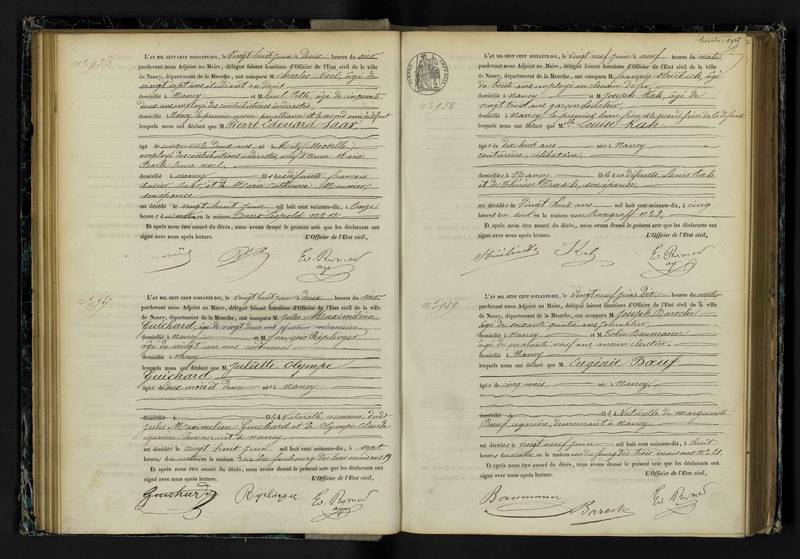 L'AN MIL HUIT CENT SOIXANTE-DIX, le vingt huit juin à deux heures du soir
pardevant nous Adjoint au Maire, délégué faisant fonctions d'Officier de l'Etat civil de la ville
de Nancy, département de la Meurthe, ont comparu M. Charles Noel, âgé de
vingt sept ans étudiant en droit
domicilié à Nancy et M. Paul Peth, âgé de cinquante
deux ans employé des contributions indirectes,
domicilié à Nancy le premier neveu par alliance et le second ami du défunt
lesquels nous ont déclaré que M. Pierre Edouard Saar
âgé de cinquante deux ans né à Metz (Moselle)
employé des contributions indirectes, veuf d'Anne Marie
Barbe Noel,
domicilié à Nancy fils de défunts François
et de Marie Catherine
son épouse
est décédé le vingt huit juin mil huit cent soixante-dix, à onze
heures du matin en la maison Cours Léopold no 12
Et après nous être assuré du décès, nous avons dressé le présent acte que les déclarants ont
signé avec nous après lecture. L'Officier de l'Etat civil,
L'AN MIL HUIT CENT SOIXANTE-DIX, le vingt huit juin à deux heures du soir
pardevant nous Adjoint au Maire, délégué faisant fonctions d'Officier de l'Etat civil de la ville
de Nancy, département de la Meurthe, ont comparu M. Jules Maximilien
Guichard, âgé de vingt deux ans ajusteur mécanicien
domicilié à Nancy et M. François Riplinger
âgé de vingt un ans cordonnier
domicilié à Nancy
lesquels nous ont déclaré que M. Juliette Olympe
Guichard
âgée de deux mois et demi née à Nancy
domicilié à fille Naturelle reconnue dudit
Jules Maximilien Guichard et de Olympe Claude
cigarière demeurant à Nancy
est décédée le vingt huit juin mil huit cent soixante-dix, à sept
heures du matin en la maison rue du faubourg des trois maisons 19
Et après nous être assuré du décès, nous avons dressé le présent acte que les déclarants ont
signé avec nous après lecture. L'Officier de l'Etat civil,
Guichard Riplinger
No 938.
L'AN MIL HUIT CENT SOIXANTE-DIX, le vingt neuf juin à neuf heures du matin
pardevant nous Adjoint au Maire, délégué faisant fonctions d'Officier de l'Etat civil de la ville
de Nancy, département de la Meurthe, ont comparu M. François âgé
de trente ans employé au chemin de fer
domicilié à Nancy et M. Joseph Kah, âgé de
vingt trois ans garçon
domicilié à Nancy, le premier beau frère et le second frère de la défunte
lesquels nous ont déclaré que Mlle Louise Kah
âgée de dix huit ans née à Nancy
couturière, célibataire
domiciliée à Nancy fille de défunt Louis Kah
et de Thérèse son épouse,
est décédée le Vingt huit mil huit cent soixante-dix, à cinq
heures du soir en la maison rue Raugraff no 22.
Et après nous être assuré du décès, nous avons dressé le présent acte que les déclarants ont
signé avec nous après lecture. L'Officier de l'Etat civil,
Kah
No 939.
L'AN MIL HUIT CENT SOIXANTE-DIX, le Vingt neuf juin à Dix heures du matin
pardevant nous Adjoint au Maire, délégué faisant fonctions d'Officier de l'Etat civil de la ville
de Nancy, département de la Meurthe, ont comparu M. Joseph Baroche
âgé de soixante quatre ans, ferblantier
domicilié à Nancy et M. Baumann
âgé de quarante neuf ans ancien cloutier,
domicilié à Nancy
lesquels nous ont déclaré que M. Eugénie Bœuf
âgée de cinq mois née à Nancy
domicilié à fille Naturelle de Marguerite
Bœuf cigarière, demeurant à Nancy
est décédée le vingt neuf juin mil huit cent soixante-dix, à huit
heures du matin en la maison rue du fbourg des trois maisons no 28
Et après nous être assuré du décès, nous avons dressé le présent acte que les déclarants ont
signé avec nous après lecture. L'Officier de l'Etat civil,
Baumann Baroche